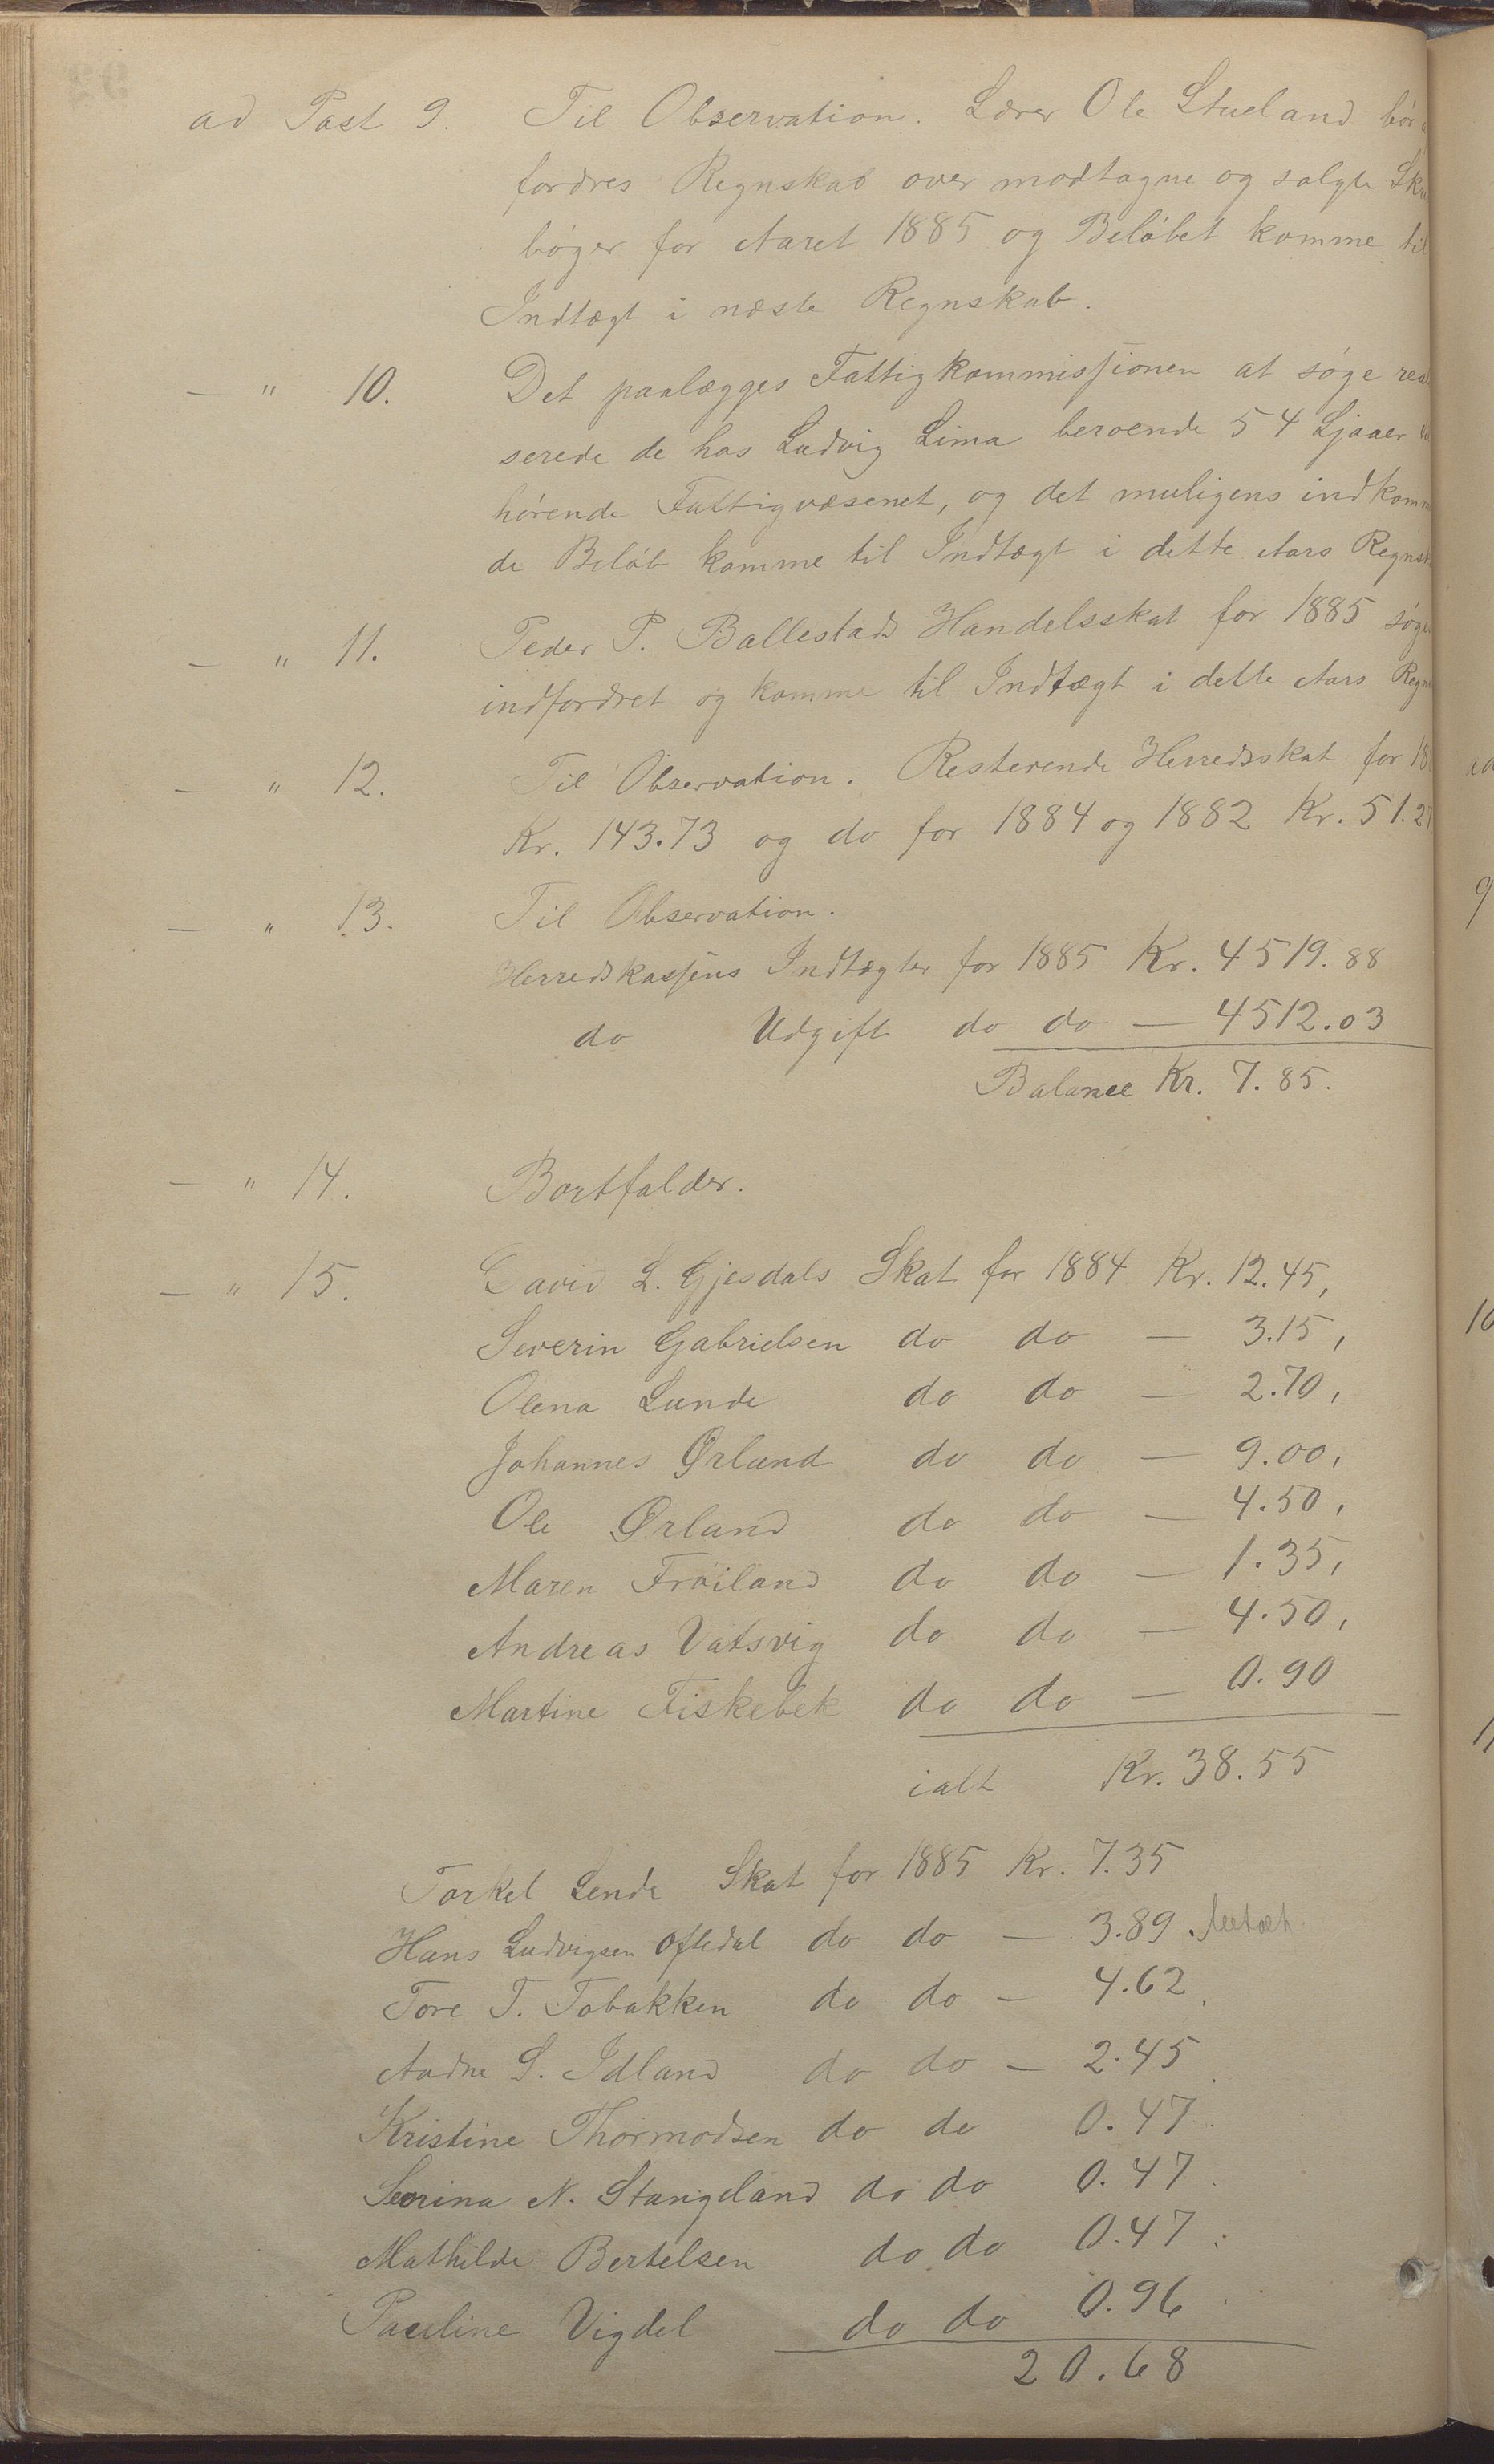 ad Post 9. Til Observation. Lærer Ole Stueland bør
fordres Regnskab over modtagne og solgte Skri
bøger for Aaret 1885 og Beløbet komme til
Indtægt i næste Regnskab.
— " 10. Det paalægges Fattigkommissionen at søge reali
serede de hos Ludvig Lima beroende 54 Ljaaer
hørende Fattigvæsenet, og det muligens indkomm
de Beløb komme til Indtægt i dette Aars Regnsk
— " 11. Peder P. Ballestads Handelsskat for 1885 søge
indfordret og komme til Indtægt i dette Aars Regn
— " 12. Til Observation. Resterende Herredsskat for 18
Kr. 143.73 og do for 1884 og 1882 Kr. 51.27
— " 13. Til Observation.
Herredskassens Indtægter for 1885 Kr. 4519.88
do Udgift do do — 4512.03
Balance Kr. 7.85.
— " 14. Bortfalder.
— " 15. David L. Gjesdals Skat for 1884 Kr. 12.45,
Severin Gabrielsen do do — 3.15,
Olena Lunde do do — 2.70,
Johannes Ørland do do — 9.00,
Ole Ørland do do — 4.50,
Maren Frøiland do do — 1.35,
Andreas Vatsvig do do — 4.50,
Martine Fiskebek do do — 0.90
ialt Kr. 38.55
Torkel Lende Skat for 1885 Kr. 7.35
Hans Ludvigsen Oftedal do do — 3.89.
Tore T. Tobakken do do — 4.62.
Aadne S. Idland do do — 2.45.
Kristine Thormodsen do do 0.47.
Serina N. Stangeland do do 0.47.
Mathilde Bertelsen do do 0.47.
Pauline Vigdel do do 0.96.
20.68